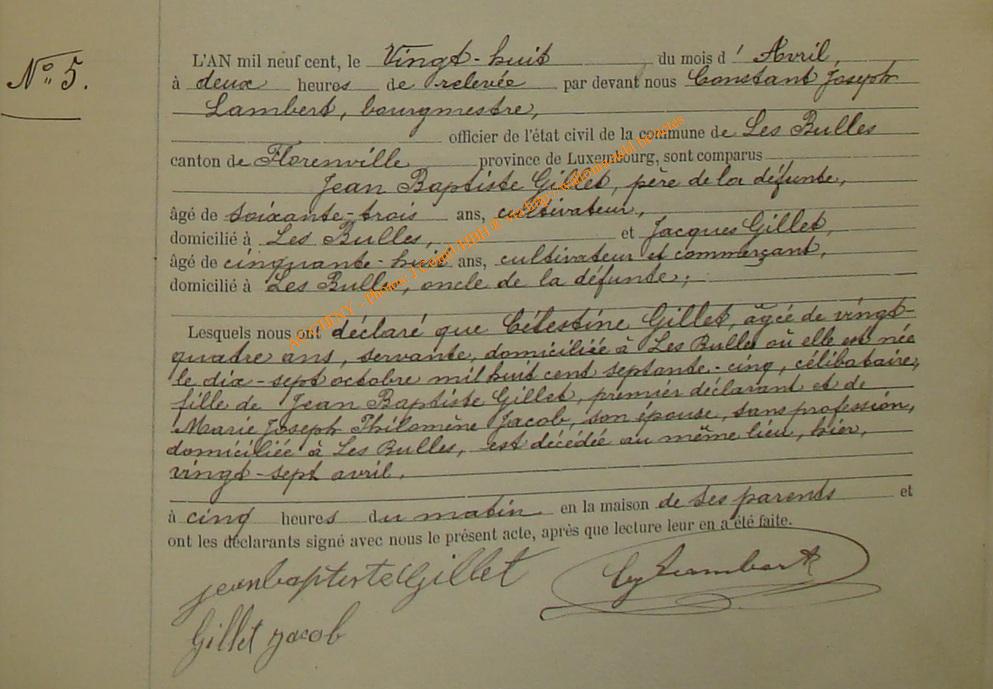 N° 5.
L'AN mil neuf cent, le Vingt-huit du mois d' Avril,
à deux heures de relevée par devant nous Constant Joseph
Lambert, bourgmestre,
officier de l'état civil de la commune de Les Bulles
canton de Florenville province de Luxembourg, sont comparus
Jean Baptiste Gillet, père de la défunte,
âgé de soixante-trois ans, cultivateur,
domicilié à Les Bulles, et Jacques Gillet,
âgé de cinquante-huit ans, cultivateur et commerçant,
domicilié à Les Bulles, oncle de la défunte;
Lesquels nous ont déclaré que Célestine Gillet, âgée de vingt-
quatre ans, servante, domiciliée à Les Bulles où elle est née
le dix-sept octobre mil huit cent septante-cinq, célibataire,
fille de Jean Baptiste Gillet, premier déclarant et de
Marie Joseph Philomène Jacob, son épouse, sans profession,
domiciliée à Les Bulles, est décédée au même lieu, hier,
vingt-sept avril.
à cinq heures du matin en la maison de ses parents et
ont les déclarants signé avec nous le présent acte, après que lecture leur en a été faite.
jeanbaptiste Gillet
Lambert
Gillet jacob